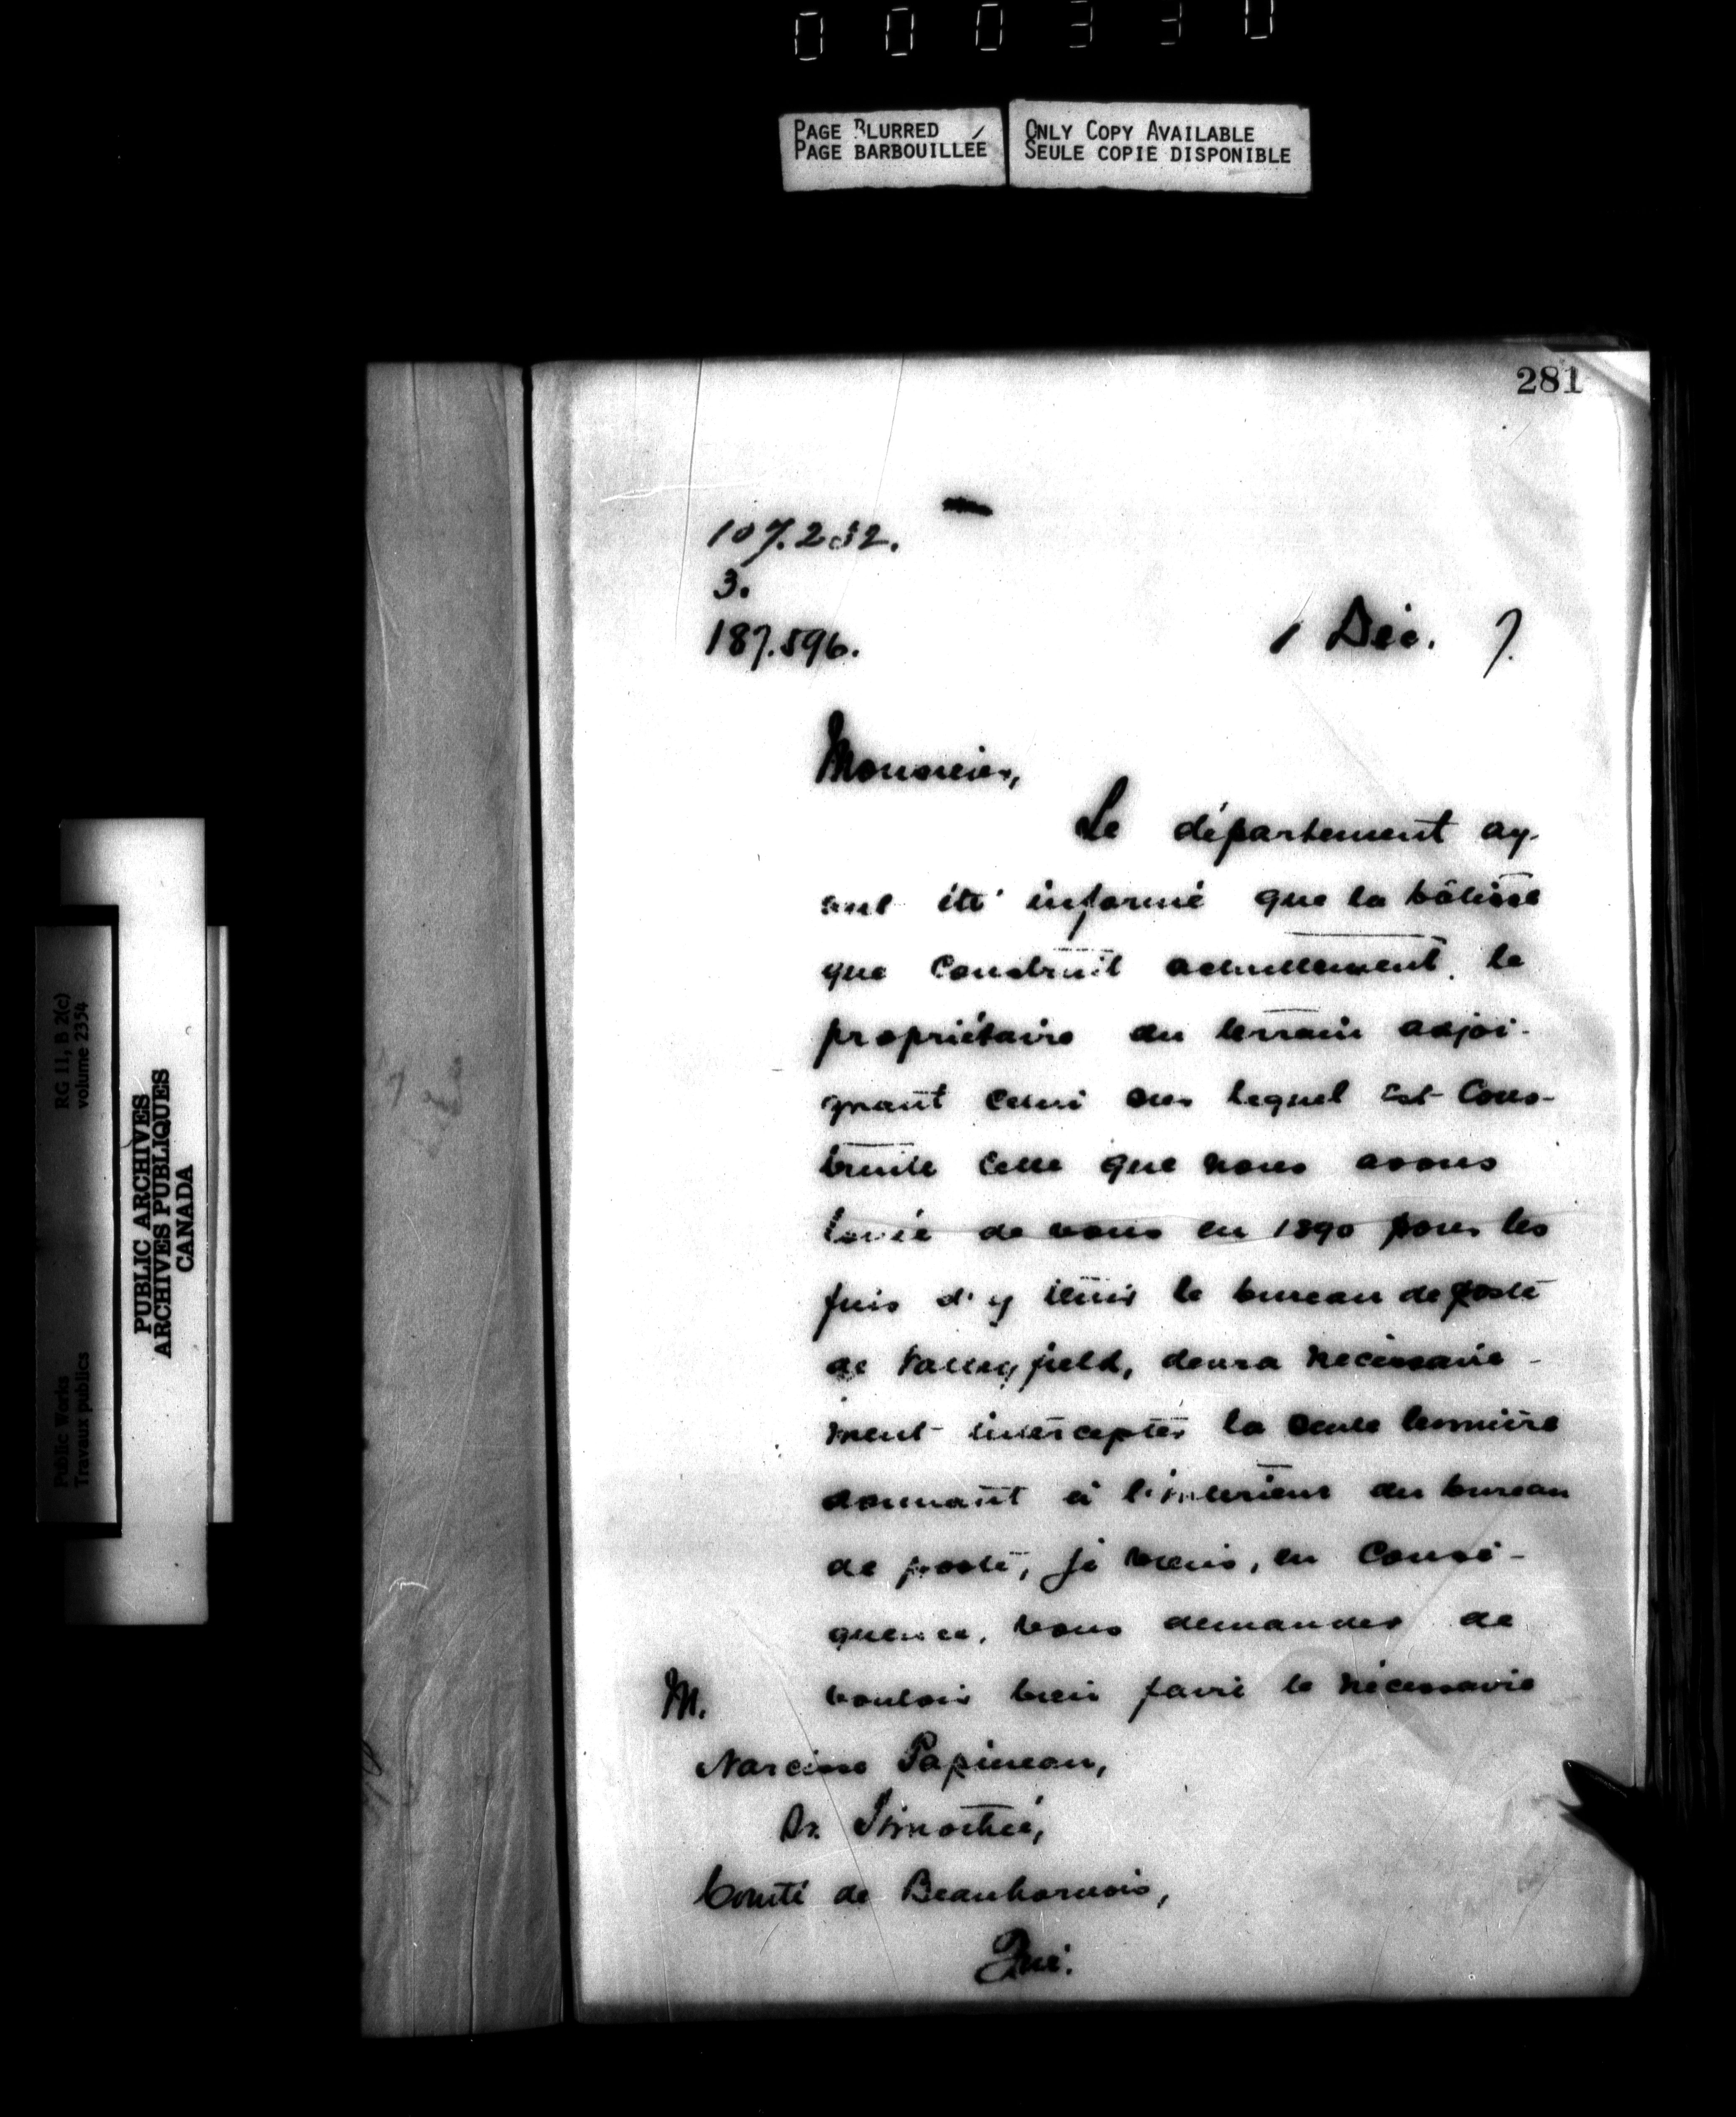 000330
PAGE BLURRED
PAGE BARBOUILLÉE
ONLY COPY AVAILABLE
SEULE COPIE DISPONIBLE
281
107.232.
3.
187.596.
1 Déc. 7.
Monsieur,
Le département ay-
ant été informé que la bâtisse
que construit actuellement le
propriétaire du terrain adjoi-
gnant celui sur lequel est cons-
truite celle que nous avons
louée de vous en 1890 pour les
fins d'y tenir le bureau de poste
de Valleyfield, devra nécessaire-
ment intercepter la seule lumière
donnant à l'intérieur du bureau
de poste, je viens, en consé-
quence, vous demander de
vouloir bien faire le nécessaire
M.
Narcisse Papineau,
St. Timothée,
Comté de Beauharnois,
Qué.
Public Works
Travaux publics
RG 11, B 2(c)
volume 2354
PUBLIC ARCHIVES
ARCHIVES PUBLIQUES
CANADA